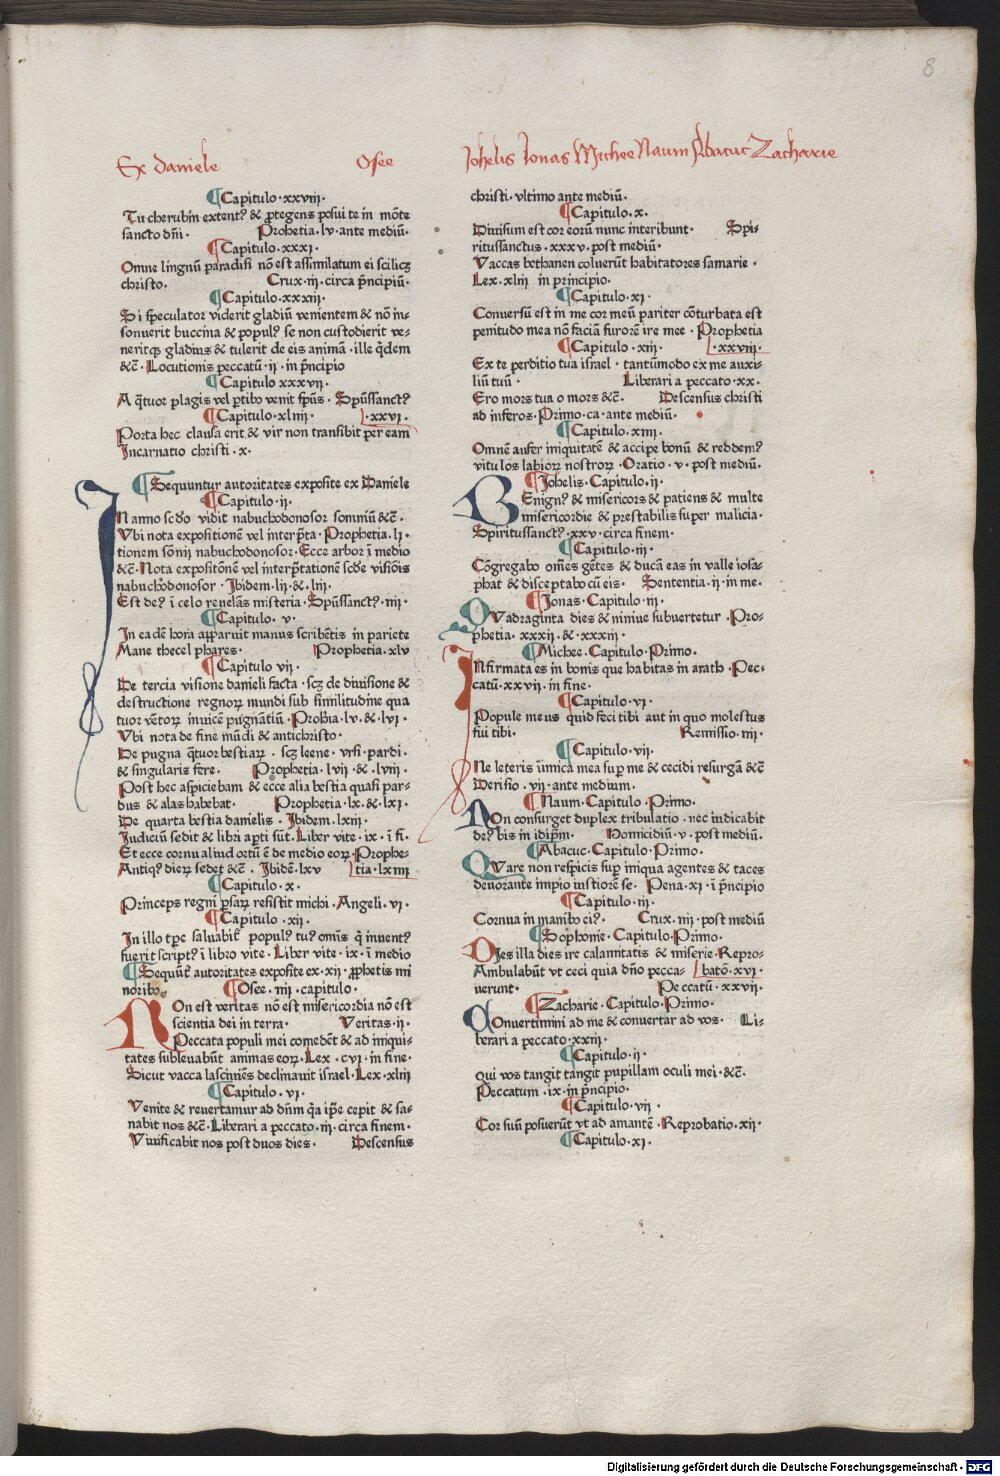 8
Ex Daniele Osee Johelis Jonas Michee Naum Abacuc Zacharie
¶Capitulo·xxviii·
Tu cherubin extentꝰ & ꝓtegens posui te in mōte
sancto dn̄i· Prohetia·lv·ante mediū·
¶Capitulo·xxxi·
Omne lingnū paradisi nō est assimilatum ei scilicꝫ
christo· Crux·iii·circa p̄ncipiū·
¶Capitulo·xxxiii·
Si speculator viderit gladiū venientem & nō in-
sonuerit buccina & populꝰ se non custodierit ve-
neritqꝫ gladius & tulerit de eis animā·ille q̇dem
&c̄·Locutionis peccatū·ii·in p̄ncipio
¶Capitulo xxxvii·
A q̇tuor plagis vel ꝑtibꝰ venit sp̄us·Spūssanctꝰ
¶Capitulo·xliiii· ·xxvi·
Porta hec clausa erit & vir non transibit per eam
Incarnatio christi·x·
¶Sequuntur autoritates exposite ex Daniele
¶Capitulo·ii·
In anno scd̄o vidit nabuchodonosor somniū &c̄·
Vbi nota expositionē vel interp̄ta·Prophetia·li·
tionem sōnii nabuchodonosor·Ecce arbor ī medio
&c̄·Nota expositōnē vel interp̄tationē scd̄e visiōis
nabuchodonosor·Ibidem·lii·&·liii·
Est deꝰ ī celo reuelās misteria·Spūssanctꝰ·iiii·
¶Capitulo·v·
In eadē hora apparuit manus scribētis in pariete
Mane thecel phares· Prophetia·xlv
¶Capitulo vii·
De tercia visione danieli facta·scꝫ de diuisione &
destructione regnoꝝ mundi sub similitudine qua
tuor vētoꝝ inuicē pugnātiū·Prohia·lv·&·lvi·
Vbi nota de fine mūdi & antichristo·
De pugna q̇tuor bestiaꝝ·scꝫ leene·vrsi·pardi·
& singularis fere· Prophetia·lvii·&·lviii·
Post hec aspiciebam & ecce alia bestia quasi par-
dus & alas habebat· Prophetia·lx·&·lxi·
De quarta bestia danielis·Ibidem·lxiii·
Judiciū sedit & libri aꝑti sūt·Liber vite·ix·ī fi·
Et ecce cornu aliud ortū ē de medio eoꝝ·Prophe-
Antiqꝰ dieꝝ sedet &c̄·Ibidē·lxv tia·lxiiii
¶Capitulo·x·
Princeps regni ꝑsaꝝ resistit michi·Angeli·vi·
¶Capitulo·xii·
In illo tꝑe saluabit̄ populꝰ tuꝰ om̄is q̇ inuentꝰ
fuerit scriptꝰ ī libro vite·Liber vite·ix·ī medio
¶Sequūt̄ autoritates exposite ex·xii·ꝓphetis mi
noribꝰ· ¶Osee·iiii·capitulo·
Non est veritas nō est misericordia nō est
scientia dei in terra· Veritas·ii·
Peccata populi mei comedēt & ad iniqui-
tates subleuabūt animas eoꝝ·Lex·cvi·in fine·
Sicut vacca lasciuiēs declinauit israel·Lex·xliii
¶Capitulo·vi·
Venite & reuertamur ad dn̄m q̇a ip̄e cepit & sa-
nabit nos &c̄·Liberari a peccato·iii·circa finem·
Viuificabit nos post duos dies· Descensus
christi·vltimo ante mediū·
¶Capitulo·x·
Diuisum est cor eorū nunc interibunt· Spi-
ritussanctus·xxxv·post mediū·
Vaccas bethauen coluerūt habitatores samarie·
Lex·xliii in principio·
¶Capitulo·xi·
Conuersū est in me cor meū pariter cōturbata est
penitudo mea nō faciā furorē ire mee·Prophetia
¶Capitulo·xiii· ·xxviii·
Ex te perditio tua israel·tantūmodo ex me auxi-
liū tuū· Liberari a peccato·xx·
Ero mors tua o mors &c̄· Descensus christi
ad inferos·Primo·ca·ante mediū·
¶Capitulo·xiiii·
Omnē aufer iniquitatē & accipe bonū & reddemꝰ
vitulos labioꝝ nostroꝝ·Oratio·v·post mediū·
¶Johelis·Capitulo·ii·
Benignꝰ & misericors & patiens & multe
misericordie & prestabilis super malicia·
Spiritussanctꝰ·xxv·circa finem·
¶Capitulo·iii·
Cōgregabo om̄es gētes & ducā eas in valle iosa-
phat & disceptabo cū eis· Sententia·ii·in me·
¶Jonas·Capitulo·iii·
Quadraginta dies & niniue subuertetur·Pro-
phetia·xxxii·&·xxxiii·
¶Michee·Capitulo·Primo·
Infirmata es in bonis que habitas in arath·Pec-
catū·xxvii·in fine·
¶Capitulo·vi·
Popule meus quid feci tibi aut in quo molestus
fui tibi· Remissio·iii·
¶Capitulo·vii·
Ne leteris inimica mea suꝑ me & cecidi resurgā &c̄
Derisio·vii·ante medium·
¶Naum·Capitulo·Primo·
Non consurget duplex tribulatio·nec iudicabit
deꝰ bis in idip̄m· Homicidiū·v·post mediū·
¶Abacuc·Capitulo·Primo·
Quare non respicis suꝑ iniqua agentes & taces
deuorante impio iustiorē se· Pena·xi·ī p̄ncipio
¶Capitulo·iii·
Cornua in manibꝰ eiꝰ· Crux·iii·post mediū
¶Sophonie·Capitulo·Primo·
Dies illa dies ire calamitatis & miserie·Repro-
Ambulabūt vt ceci quia dn̄o pecca- batō·xvi·
uerunt· Peccatū·xxvii·
¶Zacharie·Capitulo·Primo·
Conuertimini ad me & conuertar ad vos· Li-
berari a peccato·xxiii·
¶Capitulo·ii·
qui vos tangit tangit pupillam oculi mei·&c̄·
Peccatum·ix·in p̄ncipio·
¶Capitulo·vii·
Cor suū posuerūt vt adamantē·Reprobatio·xii·
¶Capitulo·xi·
Digitalisierung gefördert durch die Deutsche Forschungsgemeinschaft - DFG